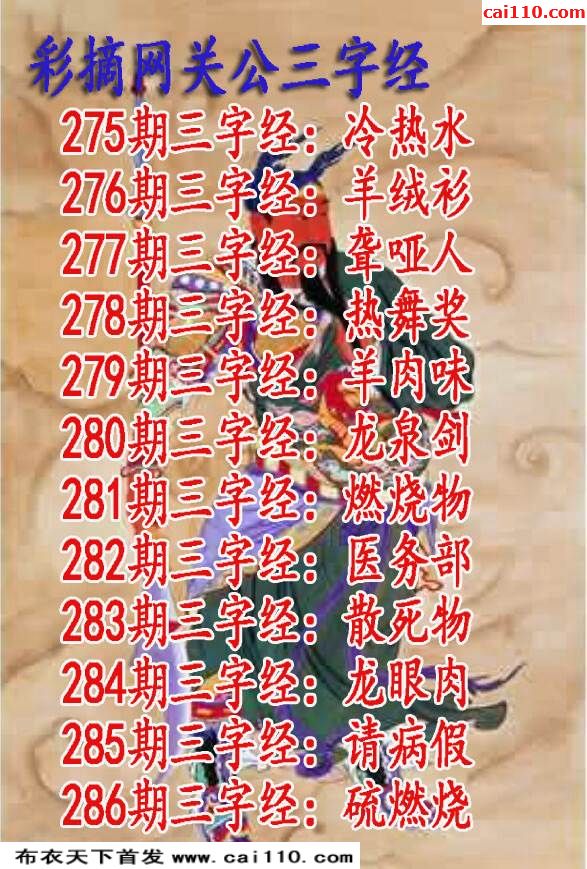 cai110.com
彩摘网关公三字经
275期三字经：冷热水
276期三字经：羊绒衫
277期三字经：聋哑人
278期三字经：热舞奖
279期三字经：羊肉味
280期三字经：龙泉剑
281期三字经：燃烧物
282期三字经：医务部
283期三字经：散死物
284期三字经：龙眼肉
285期三字经：请病假
286期三字经：硫燃烧
布衣天下首发 www.cai110.com